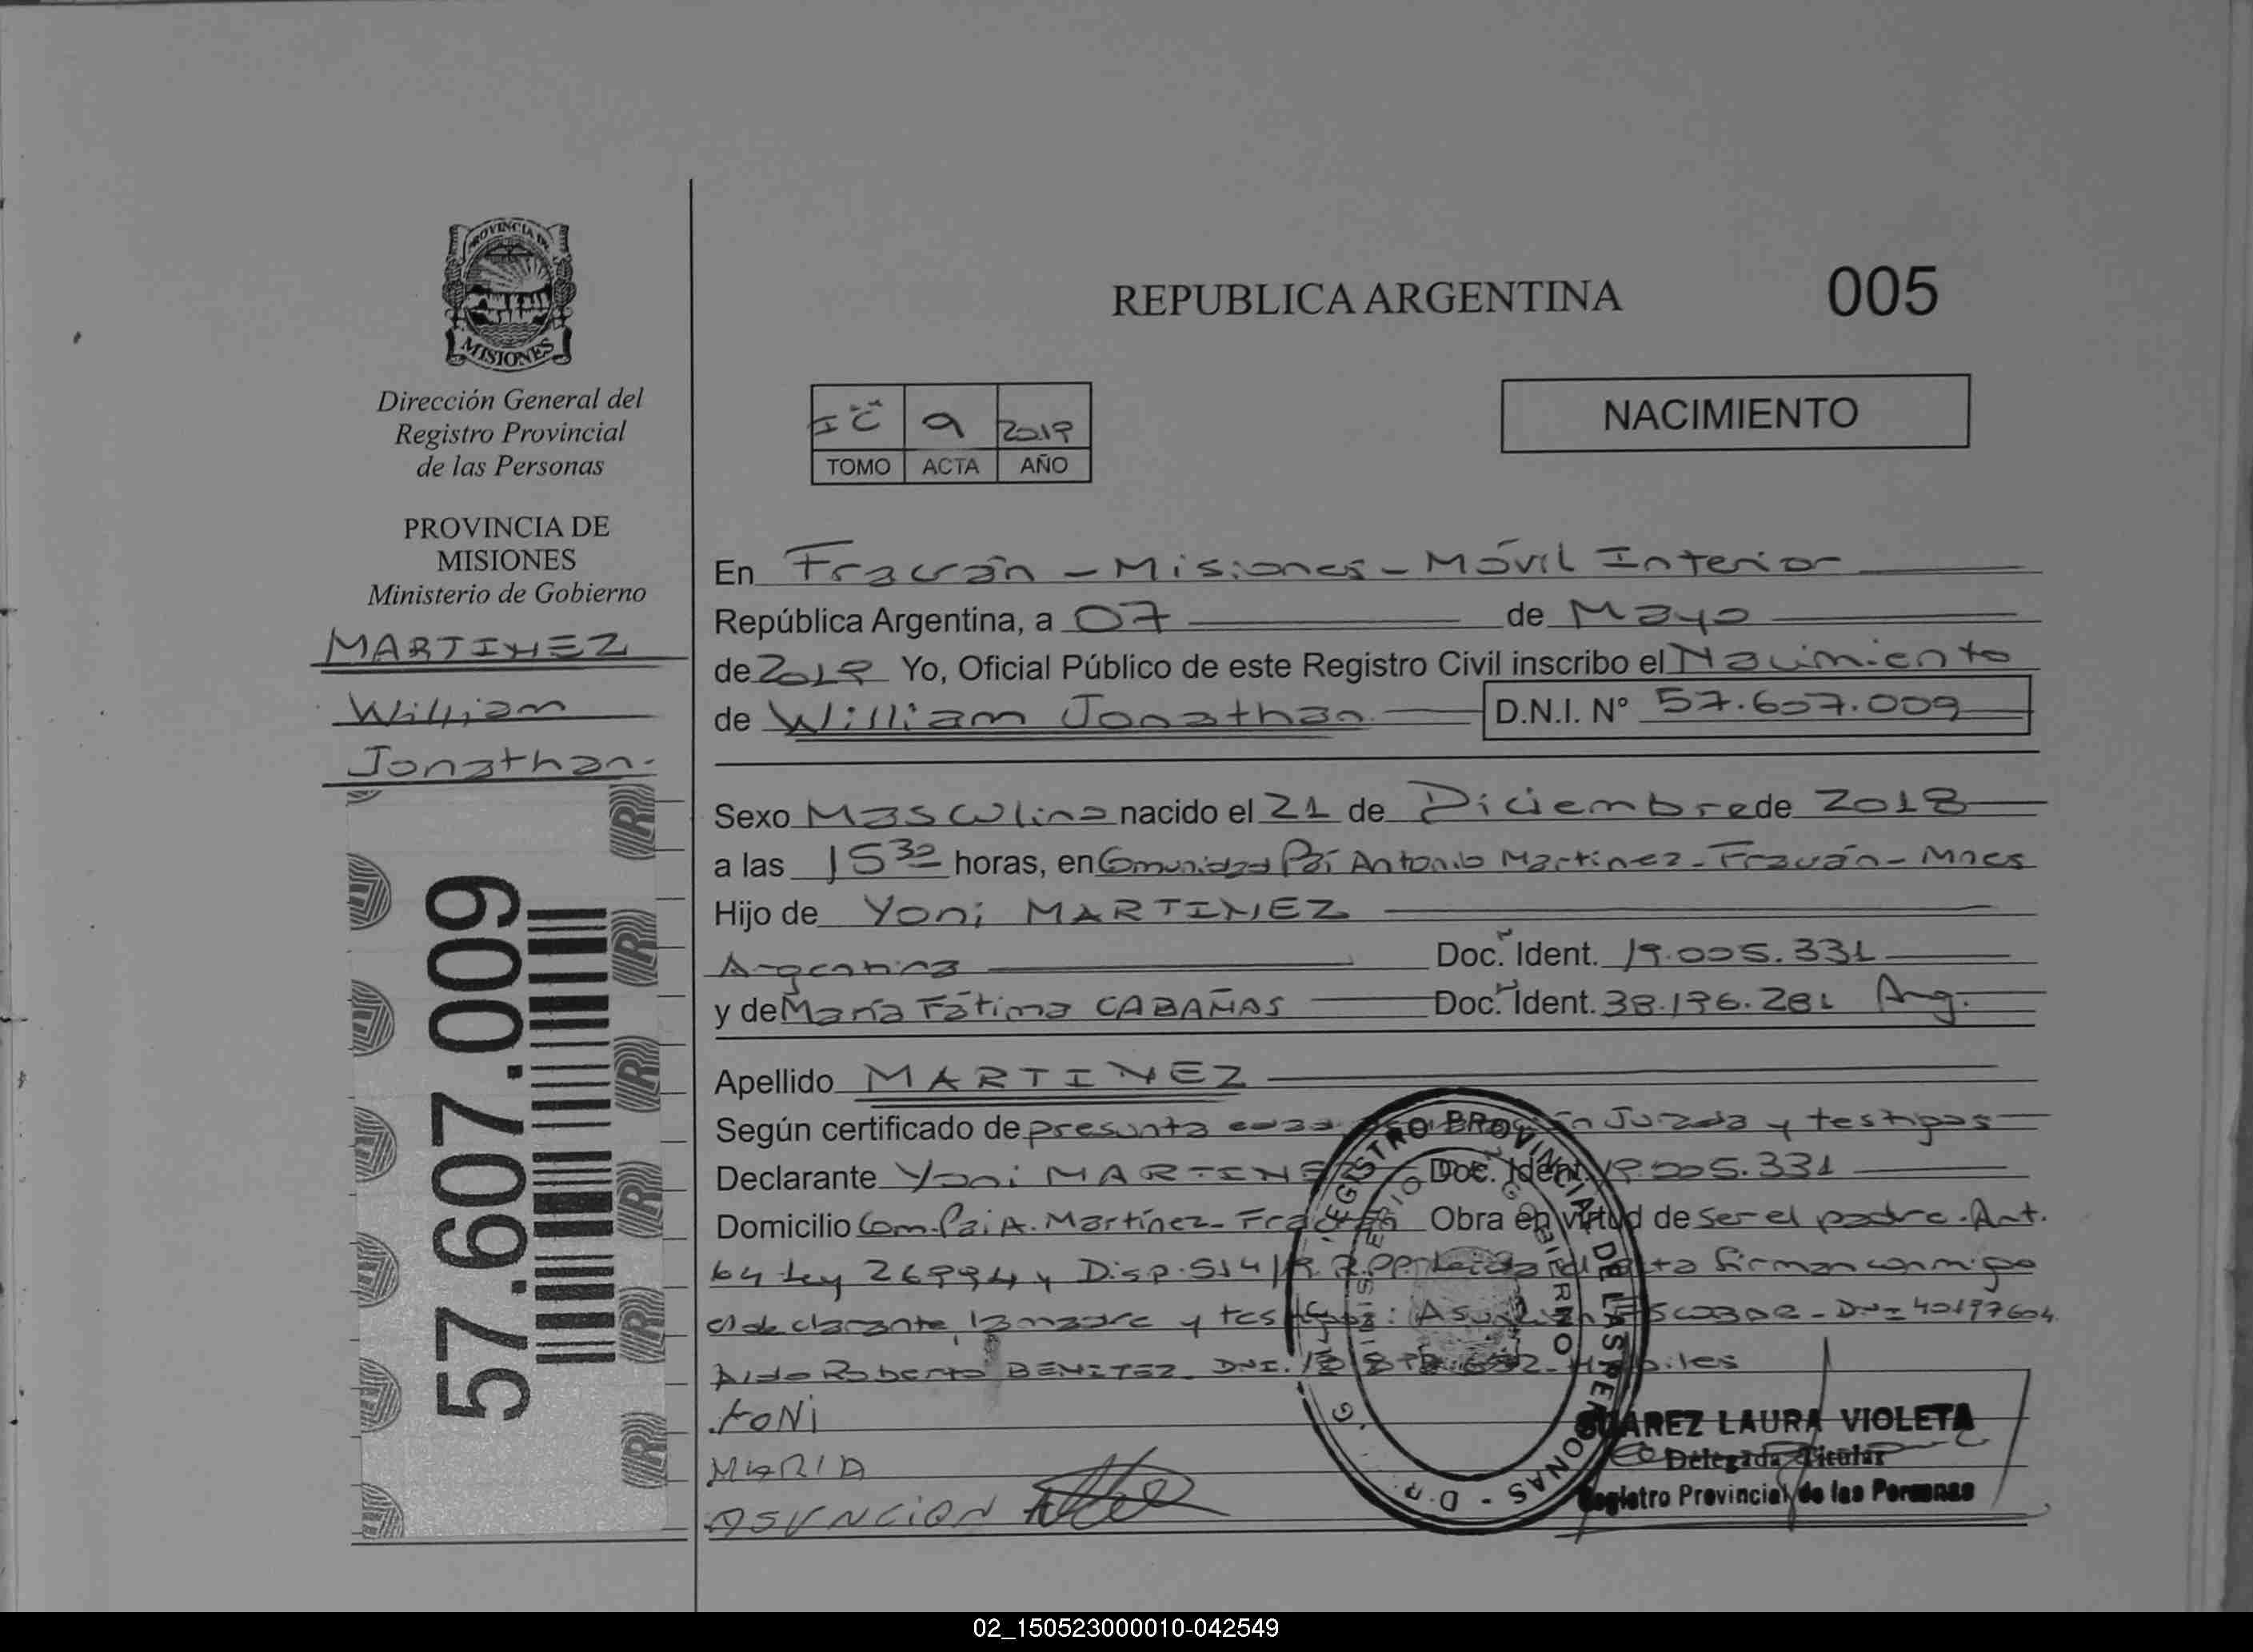 PROVINCIA DE
MISIONES
Dirección General del
Registro Provincial
de las Personas
PROVINCIA DE
MISIONES
Ministerio de Gobierno
MARTINEZ
William
Jonathan.
57.607.009
REPUBLICA ARGENTINA
005
NACIMIENTO
9 2019
TOMO ACTA AÑO
En Fracrán - Misiones - Móvil Interior
República Argentina, a 07 de Mayo
de 2019 Yo, Oficial Público de este Registro Civil inscribo el Nacimiento
de William Jonathan. D.N.I. Nº 57.607.009
Sexo Masculino nacido el 21 de Diciembre de 2018
a las 15 30 horas, en Comunidad Pai Antonio Martínez - Fracrán - Mnes
Hijo de Yoni MARTINEZ
Argentina Doc. Ident. 19.005.331
y de María Fátima CABAÑAS Doc. Ident. 38.196.281 Arg.
Apellido MARTINEZ
Según certificado de presunta Jurada y testigos
Declarante Yoni MARTINEZ Doc. Ident. 19.005.331
Domicilio Com. Pai A. Martínez - Fracrán Obra en virtud de ser el padre. Art.
64 Ley 26994 y Disp. 514/ firman conmigo
el declarante, la madre y testigos: Asunción ESCOBAR - DNI 40197604
Aldo Roberto BENITEZ. DNI. Hábiles
YONI
MARIA
ASUNCION
REGISTRO PROVINCIAL DE LAS PERSONAS
SUAREZ LAURA VIOLETA
Delegada Titular
Registro Provincial de las Personas
02_150523000010-042549